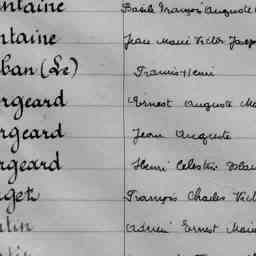 ntaine Basile François Auguste
ntaine Jean Marie Victor Jose
ban (Le) Francis Henri
rgeard Ernest Auguste Ma
rgeard Jean Auguste
rgeard Henri Célestin
get François Charles Vict
tin Adrien Ernest Marie